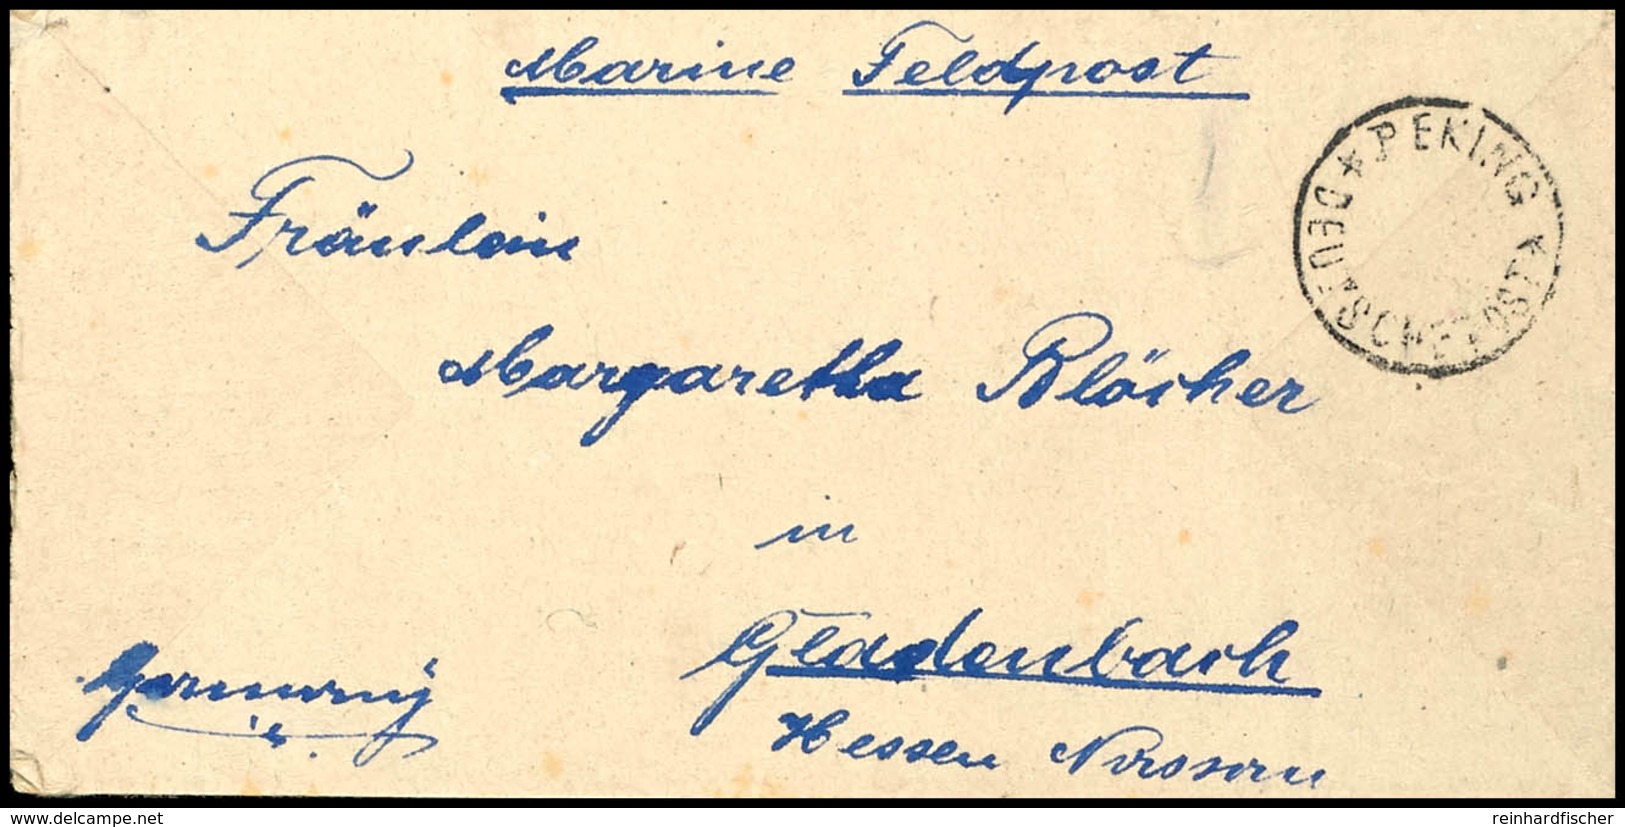 Marine Feldpost
* PEKING *
DEUTSCHE POST
Fräulein
Margaretha Blöcher
in
Gladenbach
Germany
Hessen Nassau
www.delcampe.net
reinhardfischer